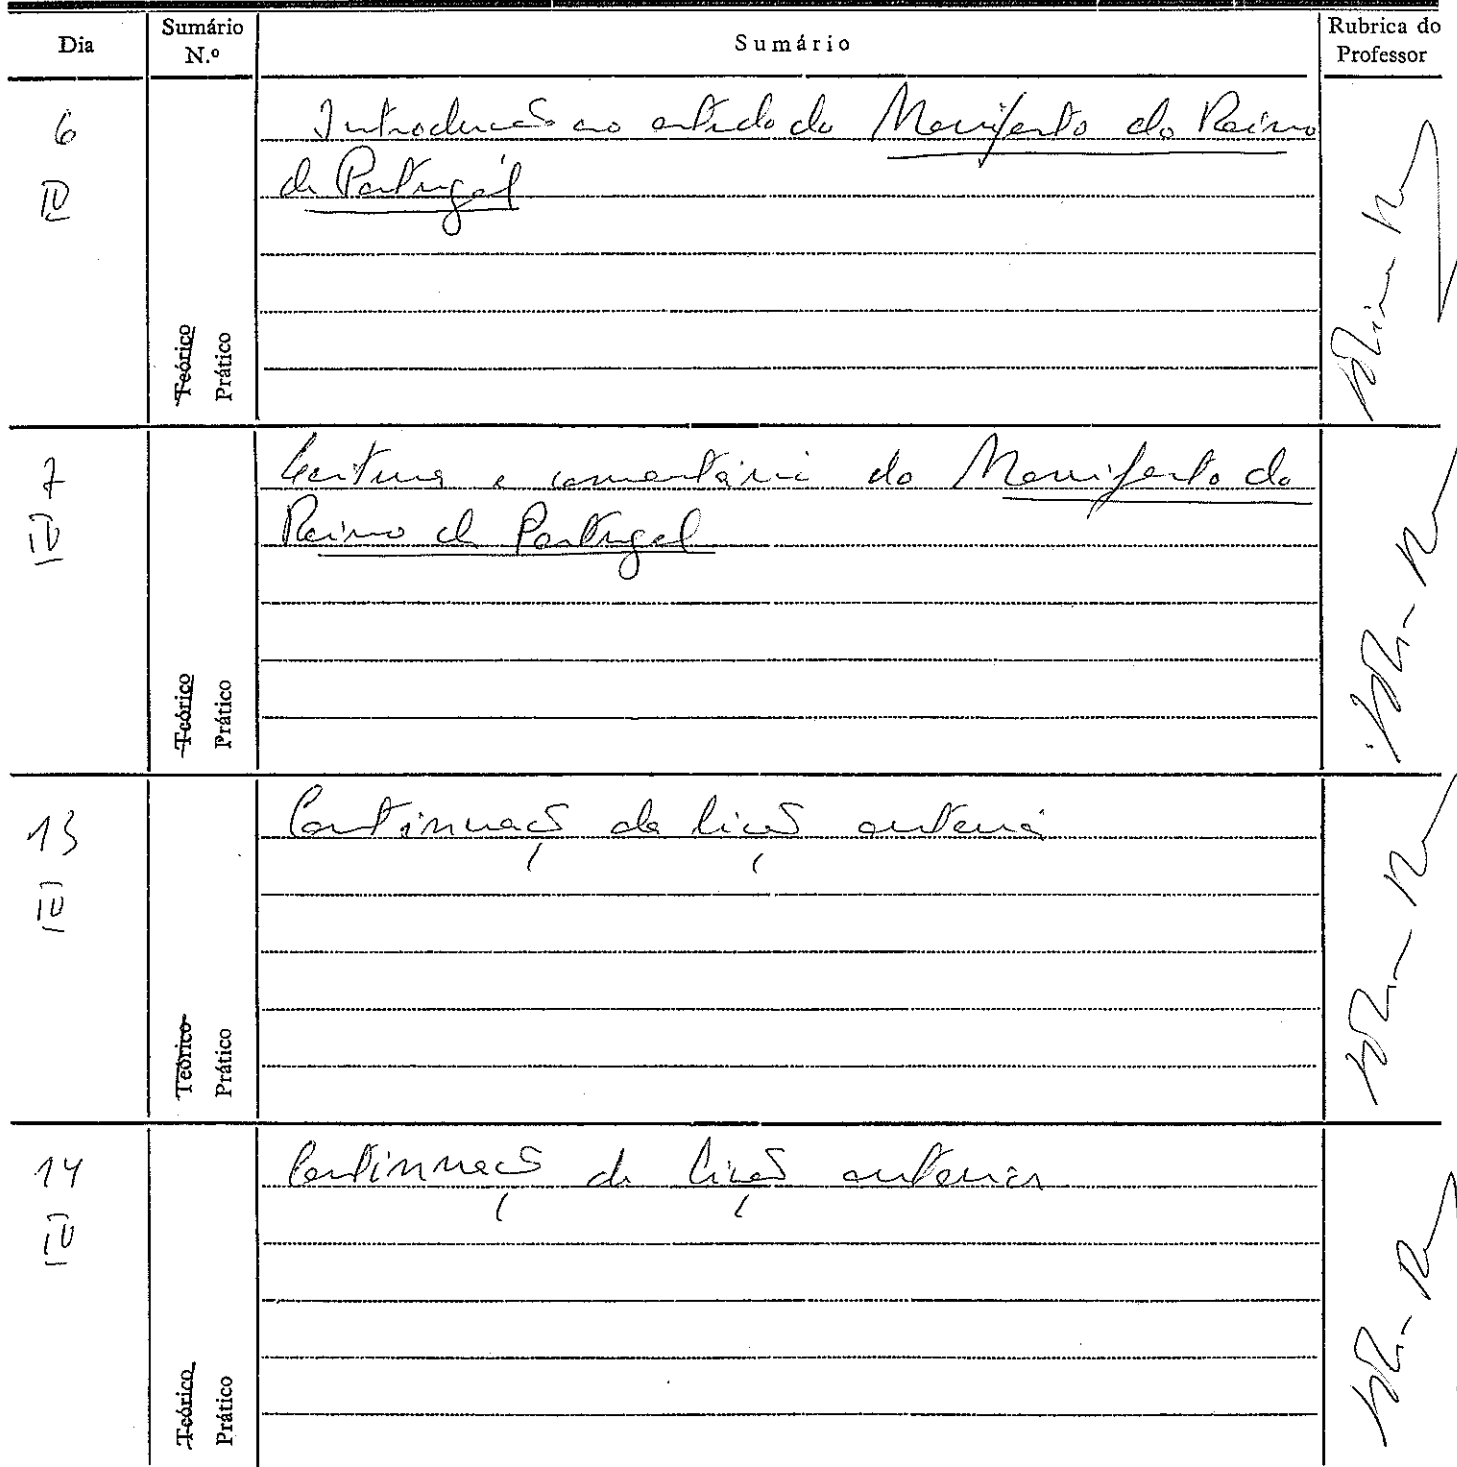 Dia
Sumário N.º
Sumário
Rubrica do Professor
6
IV
Introdução ao estudo do Manifesto do Reino
de Portugal
Teórico
Prático
7
IV
Leitura e comentário do Manifesto do
Reino de Portugal
Teórico
Prático
13
IV
Continuação da lição anterior
Teórico
Prático
14
IV
Continuação da lição anterior
Teórico
Prático